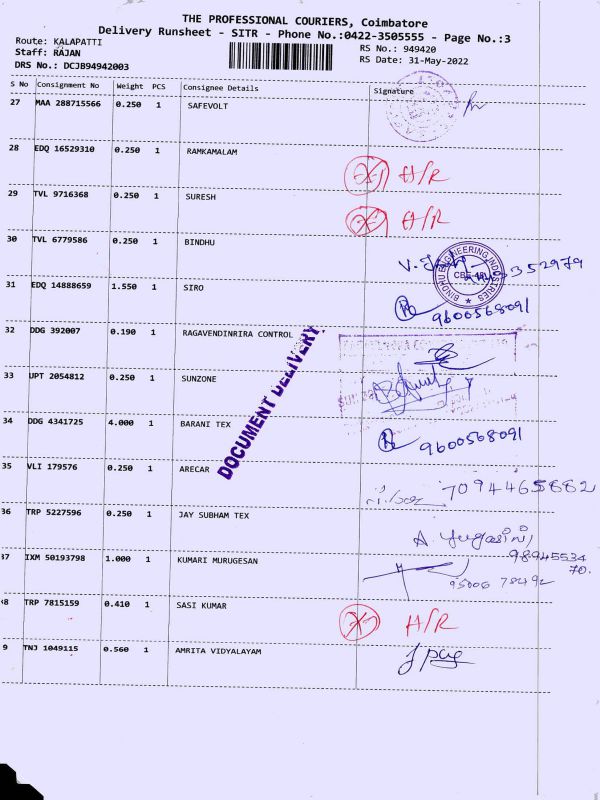 THE PROFESSIONAL COURIERS, Coimbatore
Delivery Runsheet - SITR - Phone No.:0422-3505555 - Page No.:3
Route: KALAPATTI
RS No.: 949420
Staff: RAJAN
RS Date: 31-May-2022
DRS No.: DCJB94942003
S No Consignment No Weight PCS Consignee Details Signature
27 MAA 288715566 0.250 1 SAFEVOLT
28 EDQ 16529310 0.250 1 RAMKAMALAM
H/R
29 TVL 9716368 0.250 1 SURESH
H/R
30 TVL 6779586 0.250 1 BINDHU
BINDHU ENGINEERING INDUSTRIES
31 EDQ 14888659 1.550 1 SIRO
9600568091
32 DDG 392007 0.190 1 RAGAVENDINRIRA CONTROL
DOCUMENT DELIVERY
33 UPT 2054812 0.250 1 SUNZONE
34 DDG 4341725 4.000 1 BARANI TEX
9600568091
35 VLI 179576 0.250 1 ARECAR
7094465882
36 TRP 5227596 0.250 1 JAY SUBHAM TEX
37 IXM 50193798 1.000 1 KUMARI MURUGESAN
98945534
70.
95006 78492
38 TRP 7815159 0.410 1 SASI KUMAR
H/R
9 TNJ 1049115 0.560 1 AMRITA VIDYALAYAM